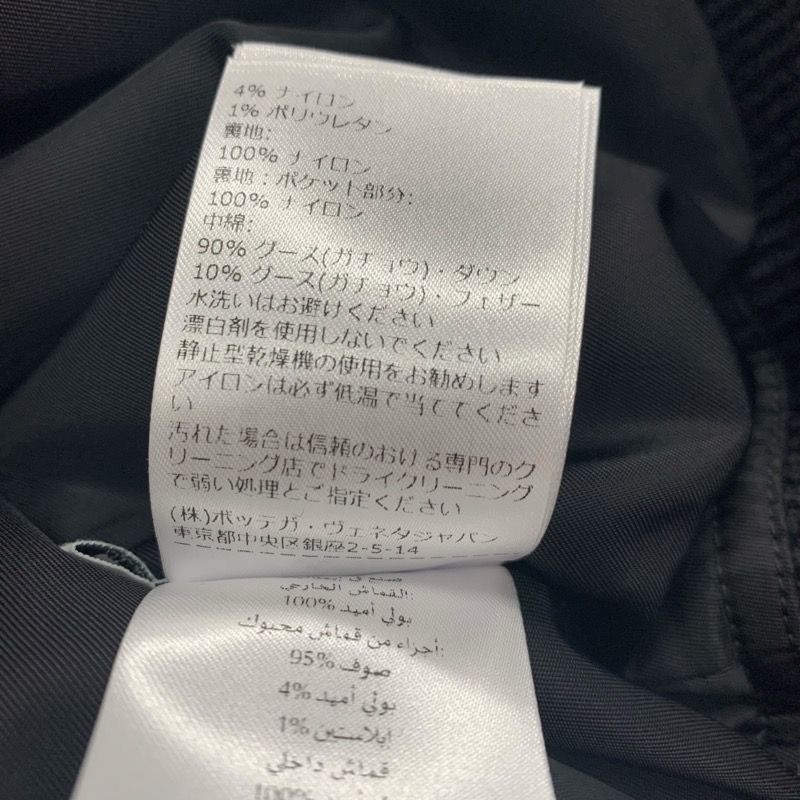 4% ナイロン
1% ポリウレタン
裏地:
100% ナイロン
裏地：ポケット部分:
100% ナイロン
中綿:
90% グース(ガチョウ)・ダウン
10% グース(ガチョウ)・フェザー
水洗いはお避けください
漂白剤を使用しないでください
静止型乾燥機の使用をお勧めします
アイロンは必ず低温で当ててくださ
い
汚れた場合は信頼のおける専門のク
リーニング店でドライクリーニング
で弱い処理とご指定ください
(株)ボッテガ・ヴェネタジャパン
東京都中央区銀座2-5-14
القماش الخارجي:
بولي أميد %100
أجزاء من قماش محبوك:
صوف %95
بولي أميد %4
ايلاستين %1
قماش داخلي